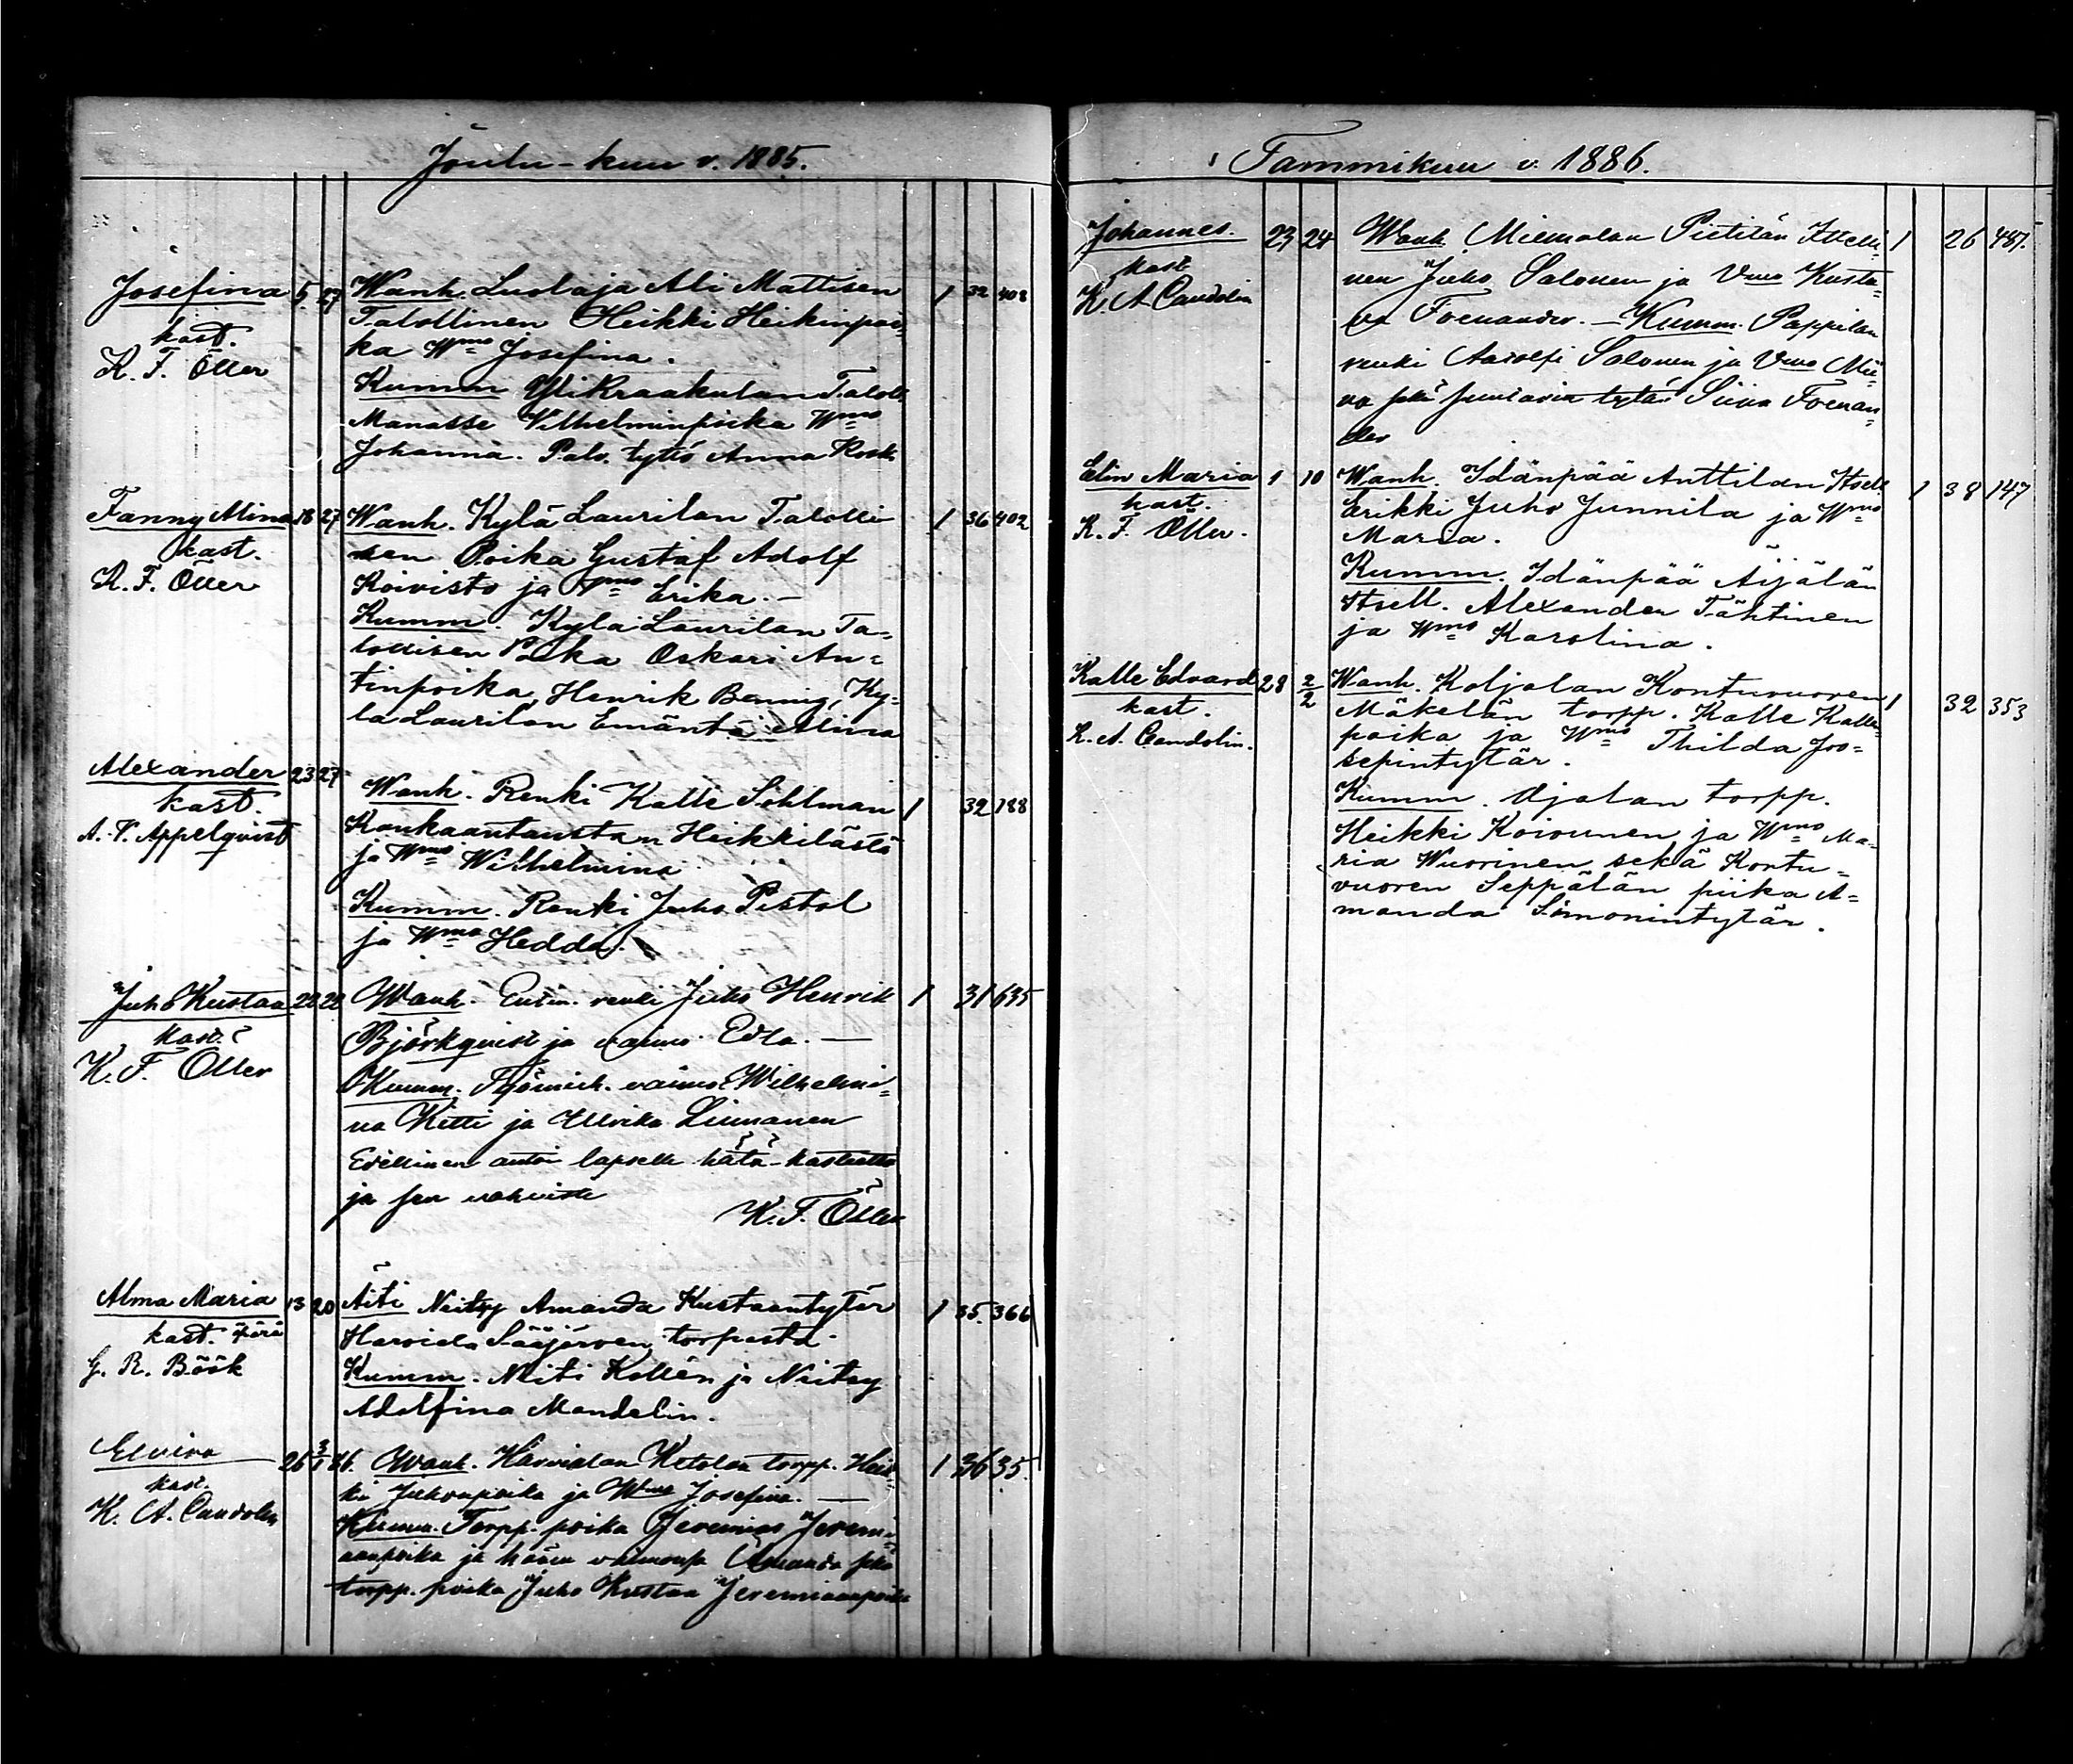 Joulu-kuu v. 1885.
Josefina 5. 27 Wanh. Luolaja Ali Mattisen 1 32 408
Talollinen Heikki Heikinpoi-
kast. ka Wmo Josefina.
K. F. Öller
Kumm Ylikraakulan Taloll.
Manasse Vilhelminpoika Wmo
Johanna. Palv. tyttö Anna Kosk.
Fanny Alina 18 27 Wanh. Kylä Laurilan Talolli 1 36 402
kast. sen Poika Gustaf Adolf
K. F. Öller Koivisto ja Vmo Erika. —
Kumm. Kylä Laurilan Ta-
lollisen Poika Oskari An-
tinpoika, Henrik Bennig, Ky-
lä Laurilan Emäntä Alina
Alexander 23 27
kast. Wanh. Renki Kalle Sehlman 1 32 188
A. V. Appelqvist Kaukaantaustan Heikkilästä
ja Wmo Wilhelmina
Kumm. Renki Juho Pistol
ja Wmo Hedda.
Juho Kustaa 22 22 Wanh. Entin. renki Juho Henrik 1 31 635
kast. Björkqvist ja vaimo Edla. —
K. F. Öller Kumm. Työmieh. vaimo Wilhelmi-
na Kitti ja Ulrika Liimanen
Edellinen antoi lapselle hätä-kasteetta
ja sen vahvisti
K. F. Öller
Alma Maria 13 20 Äiti Neitsy Amanda Kustaantytär 1 35. 366
kast. Harviala Sääjärven torpasta
G. R. Böök Kumm. Neiti Kollén ja Neitsy
Adolfina Mandelin.
Elviira 26 3/1 86. Wanh. Harvialan Ketolan torpp. Heik- 1 36 35.
kast. ki Juhonpoika ja Wmo Josefina. —
K. A. Candolin Kumm. Torpp. poika Jeremias Jeremi-
aanpoika ja hänen vaimonsa Amanda sekä
torpp. poika Juho Kustaa Jeremiaanpoika
Tammikuu v. 1886.
Johannes. 23 24 Wanh Miemalan Pietilän Itselli- 1 26 487.
kast nen Juho Salonen ja Vmo Kusta-
K. A Candolin va Foenander. — Kumm. Pappilan
renki Aadolfi Salonen ja Vmo Mii-
na sekä tytär Siina Foenan-
der
Elin Maria 1 10 Wanh. Idänpää Anttilan Itsell. 1 38 147
kast. Erikki Juho Junnila ja Wmo
K. F. Öller. Maria.
Kumm. Idänpää Äijälän
Itsell. Alexander Tähtinen
ja Wmo Karolina.
Kalle Edvard 28 2/2 Wanh. Koljalan Kontuvuoren 1 32 353
kast. Mäkelän torpp. Kalle Kalle-
K. A. Candolin. poika ja Wmo Thilda Joo-
sepintytär.
Kumm. Ojalan torpp.
Heikki Koivunen ja Wmo Ma-
ria Wuorinen sekä Kontu-
vuoren Seppälän piika A-
manda Simonintytär.